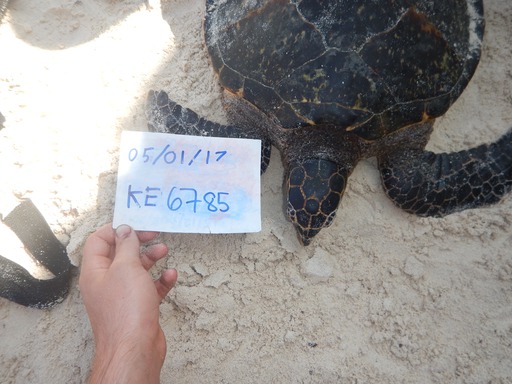 05/01/17
KE6785